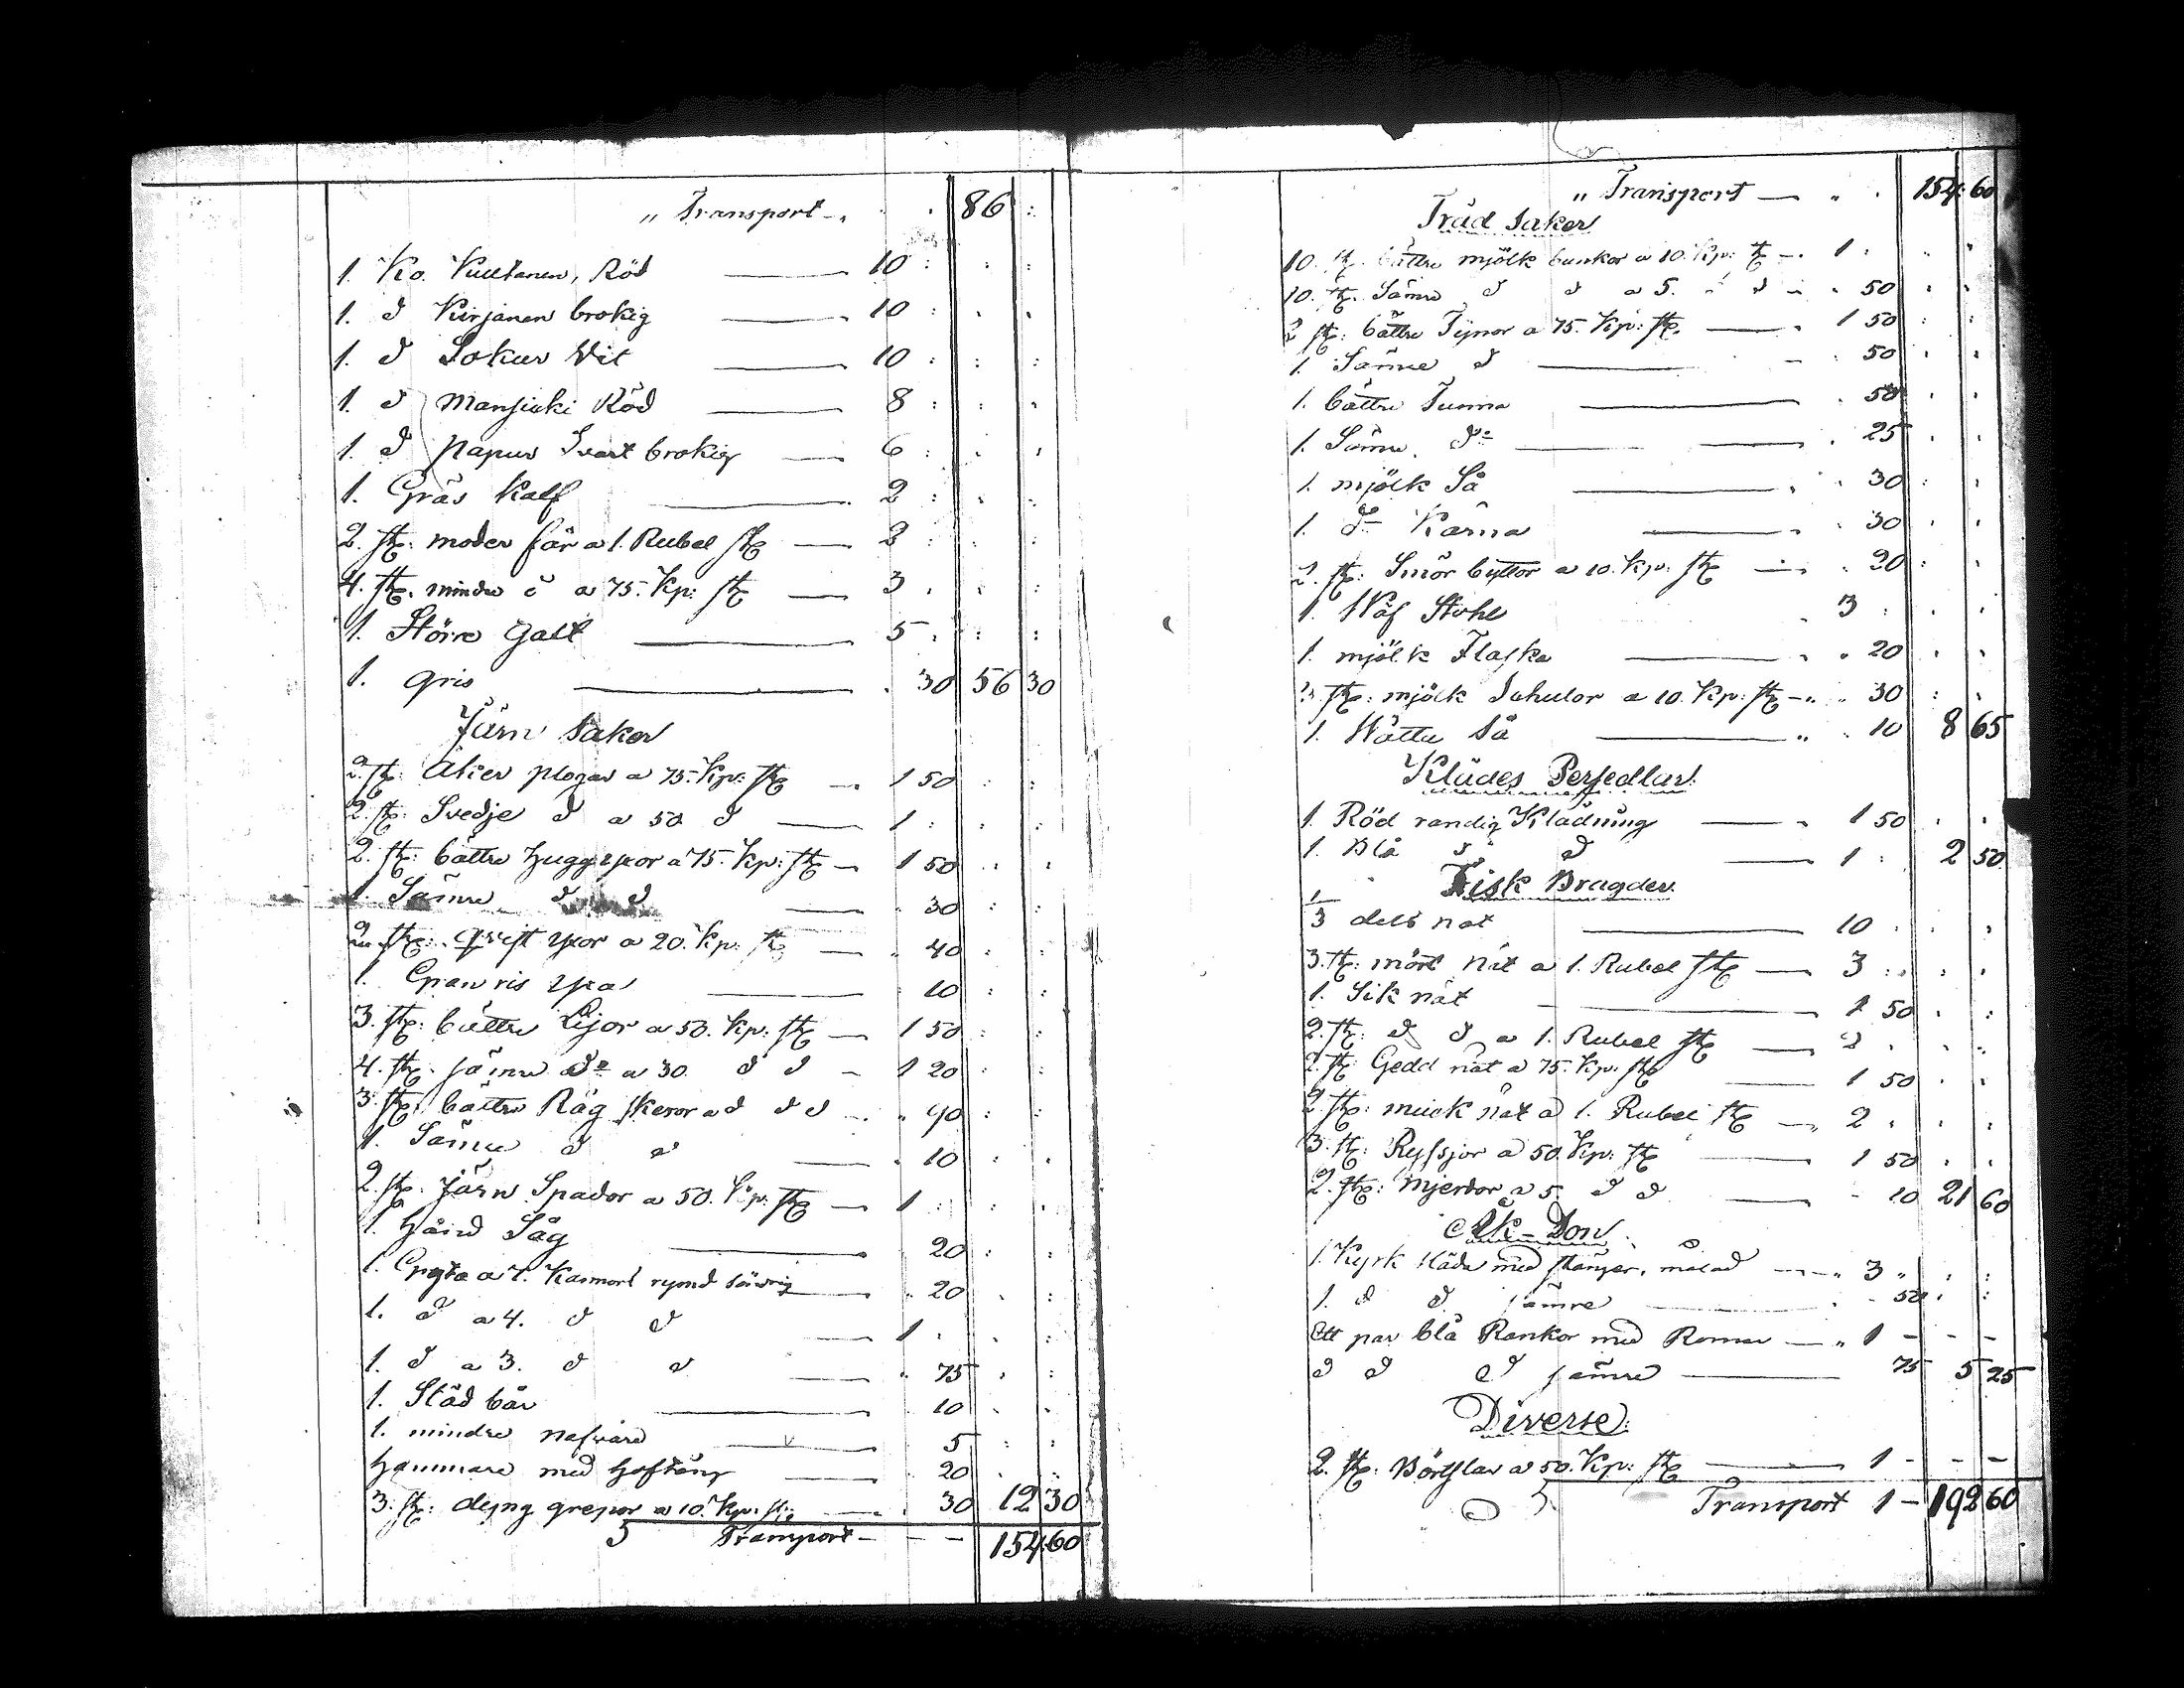 „ Transport — 86 :
1. Ko. Kultanen, Röd — 10 :
1. d Kirjanen brokig — 10 :
1. d Sokur Vit — 10 :
1. d Mansicki Röd — 8 :
1. d Papur Svart brokig — 6 :
1. Gräs Kalf — 2 :
2. st: moder får a 1. Rubel st — 2 :
4. st. mindre d a 75. Kp: st — 3 .
1. Större Galt — 5 .
1. gris — 30 56 30
Järn Saker
2. st: Åker plogar a 75. Kp: st — 1 50
2. st: Svedje d a 50 d — 1 :
2. st: bättre huggyxor a 75. Kp: st — 1 50
1. Sämre d d — 30
2. st: qvist yxor a 20. Kp: st — 40
1. Granris yxa — 10
3. st: bättre Lijor a 50. Kp: st — 1 50
4. st. sämre do a 30 d d — 1 20
3. st: bättre Råg skeror a d d d — 90
1. Sämre d d — 10
2. st. Järn Spador a 50. Kp: st — 1 :
1. Hand Såg — 20
1. Gryta a 1. Kannors rymd — 20
1. d a 4. d d — 1 .
1. d a 3. d d — 75
1. Städ bår — 10
1. mindre nafvare — 5
Hammare med Hoftång — 20
3. st: dyng grepor a 10 Kp: st: — 30 12 30
Transport — 154.60
„ Transport — 154.60
Träd Saker
10. st. bättre mjölk bunkor a 10. Kp: st — 1 :
10. st. Sämre d d a 5. d — 50
2 st: bättre Tynor a 75. Kp: st. — 1 50
1. Sämre d — 50
1. bättre Tunna — 50
1. Sämre do — 25
1. mjölk Så — 30
1. do Kärna — 30
2. st: Smör byttor a 10. Kp: st — 20
1. Wäf Stohl 3
1. mjölk Flaska — 20
3. st: mjölk a 10. Kp: st — 30
1. Wattu Så — 10 8 65
Klädes Persedlar.
1. Röd randig Klädning — 1 50
1. Blå d d — 1 : 2 50
Fisk Bragder.
1/3 dels not — 10
3. st: mört Nät a 1. Rubel st — 3
1. Sik nät — 1 50
2. st: d d a 1. Rubel st — 2
2. st: Gedd nät a 75. Kp: st — 1 50
2. st: muik nät a 1. Rubel st — 2
3. st: Ryssjor a 50. Kp: st — 1 50
2. st: Mjerdor a 5. d d — 10 21 60
Åk-Don
1. Kyrk släda med stänger, målad — 3
1. d d sämre — 50
Ett par blå Rankor med Remar — 1 — — —
d d d sämre — 75 5 25
Diverse:
2. st: Börstlar a 50. Kp: st — 1 — — —
Transport 1 — 192 60